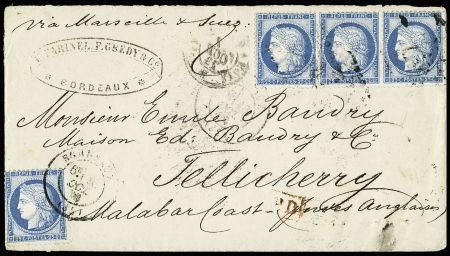 via Marseille & Suez
F. GREDY & Co
BORDEAUX
REPUB. FRANC.
REPUB. FRANC.
REPUB. FRANC.
Monsieur Emile Baudry
Maison Ed. Baudry & Co
Tellicherry
Malabar Coast - (Indes Anglaises)
PD
REPUB. FRANC.
25 C. POSTES 25 C.